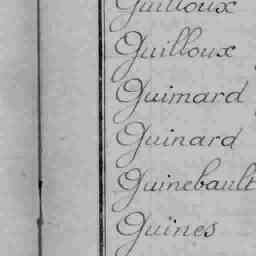 Guilloux
Guilloux
Guimard
Guinard
Guinebault
Guines